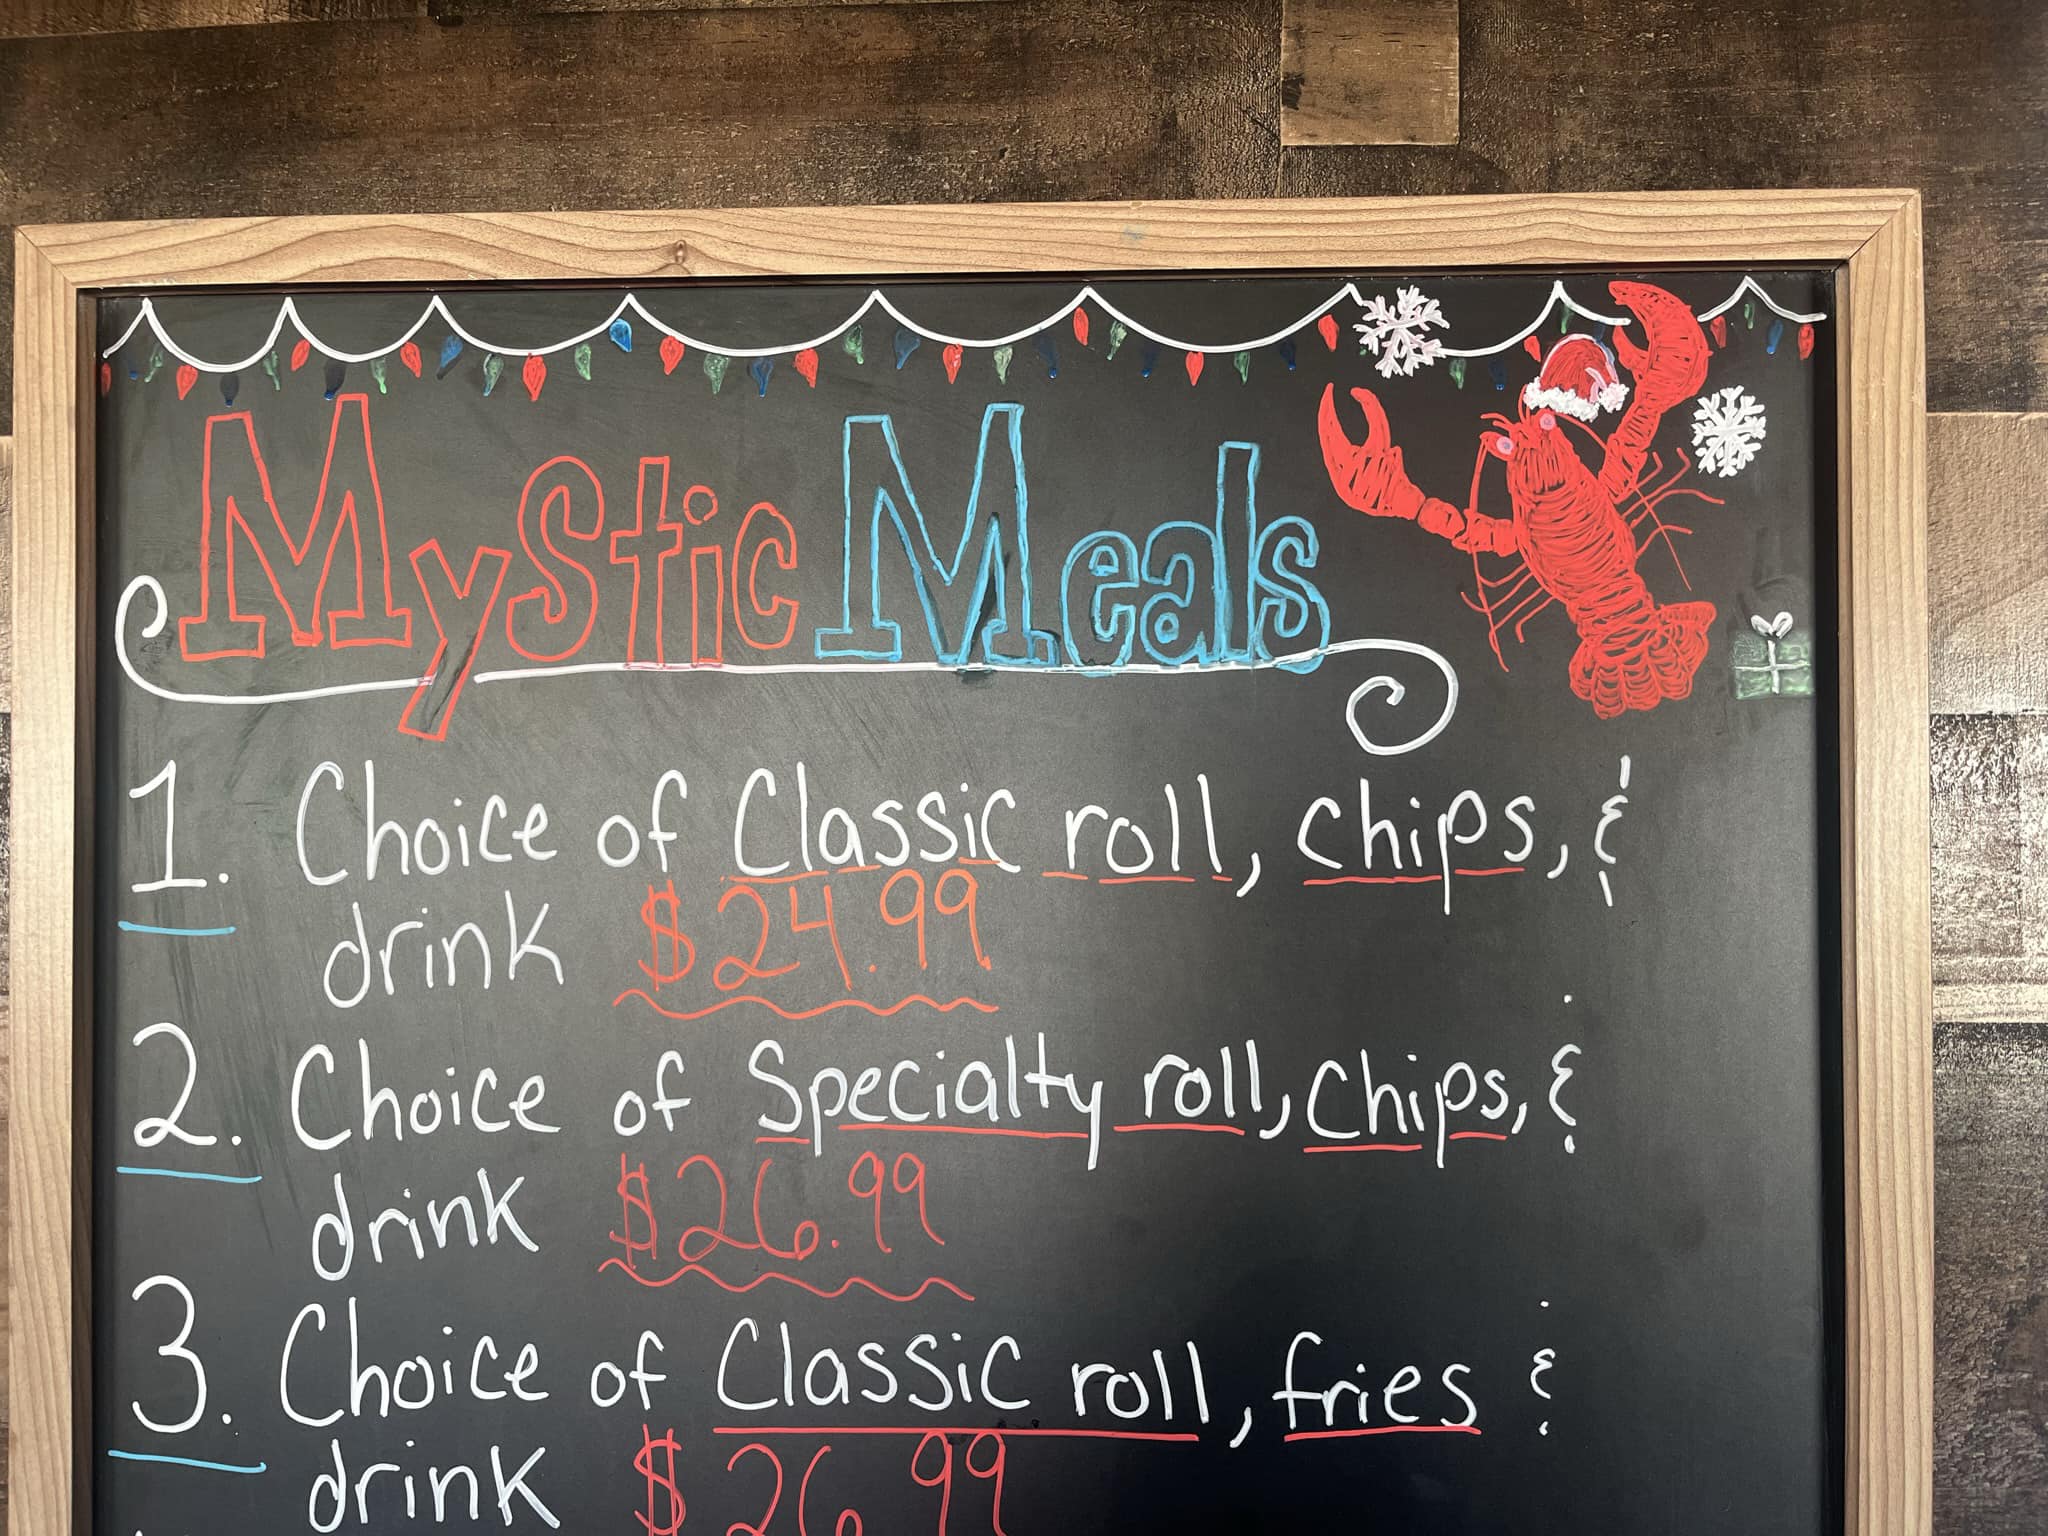 Mystic Meals
1. Choice of Classic roll, chips, &
drink $24.99
2. Choice of Specialty roll, chips, &
drink $26.99
3. Choice of Classic roll, fries &
drink $26.99